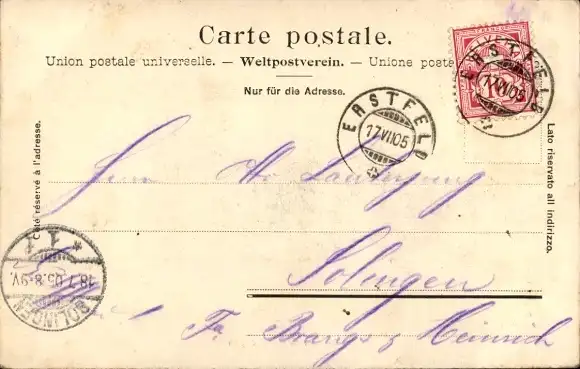 Carte postale.
Union postale universelle. — Weltpostverein. — Unione poste
Nur für die Adresse.
Côté réservé à l'adresse.
Lato riservato all indirizzo.
ERSTFELD
17.VII.05
10
ERSTFELD
17.VII.05
Herrn
Solingen
Fa. Brangs & Heinrich
SOLINGEN
18.7.05.8-9V.